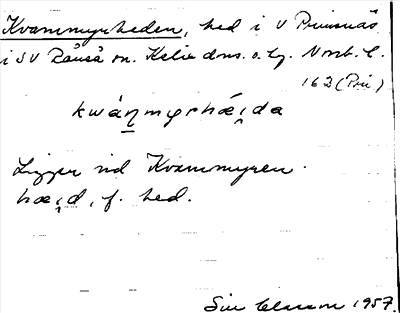 Kvarnmyrheden, hed i V Prinsnäs
i SV Råneå sn. Kalix dms. o. lg. Norrb. l.
162 (Pri)
kwáṉmyrhæi̯da
Ligger vid Kvarnmyren.
hæi̯d, f. hed.
Siv Clarson 1957.